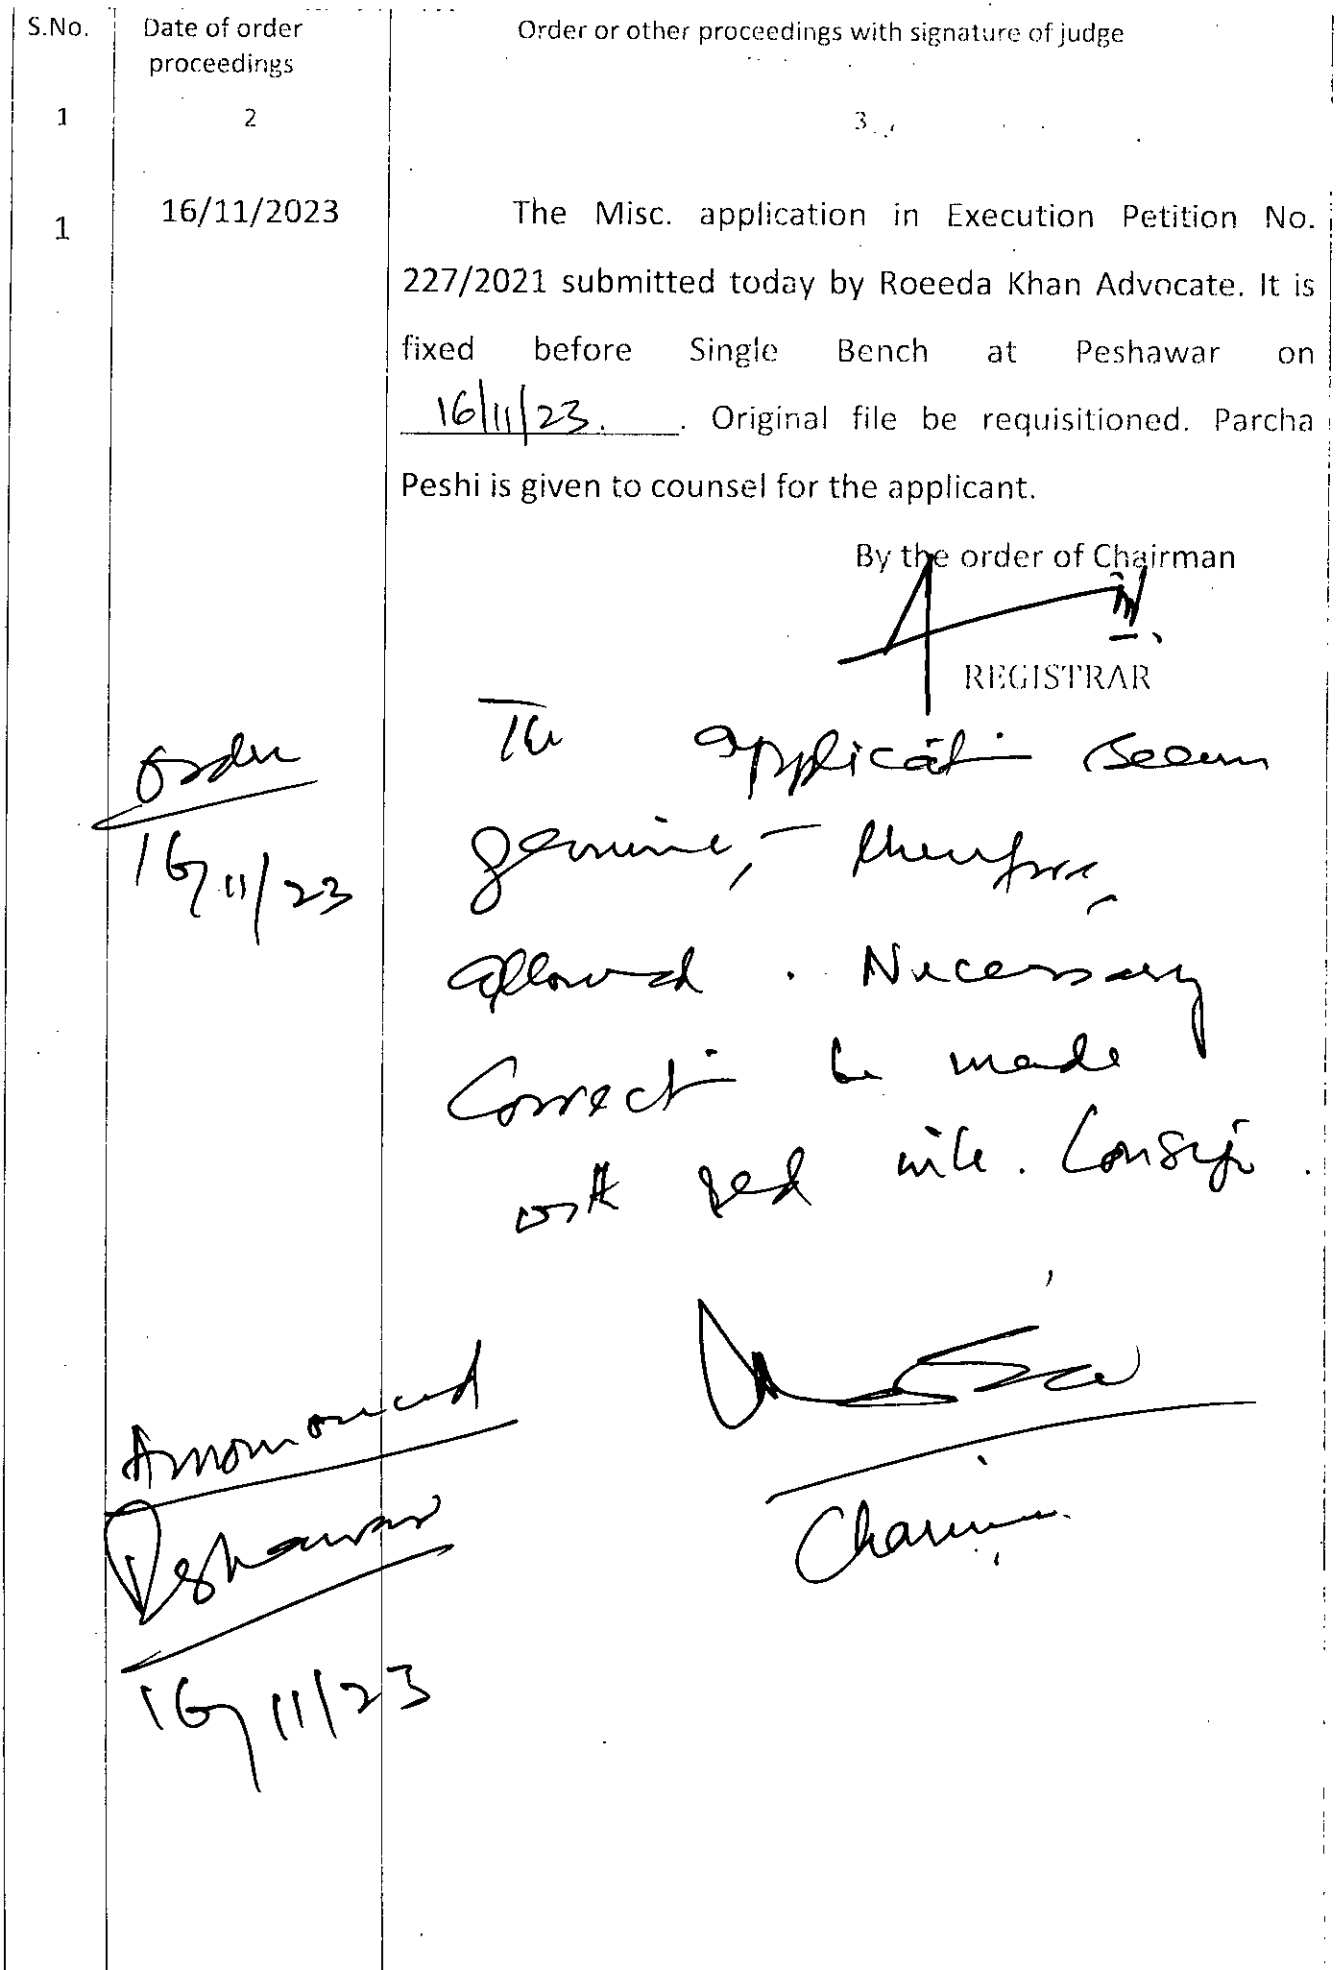 S.No. Date of order proceedings Order or other proceedings with signature of judge
1 2 3
1 16/11/2023 The Misc. application in Execution Petition No.
227/2021 submitted today by Roeeda Khan Advocate. It is
fixed before Single Bench at Peshawar on
16/11/23. . Original file be requisitioned. Parcha
Peshi is given to counsel for the applicant.
By the order of Chairman
REGISTRAR
Order
16/11/23
The application seems
genuine, therefore,
allowed. Necessary
Correction be made
with red ink. Consign.
Announced
Peshawar
16/11/23
Chairman